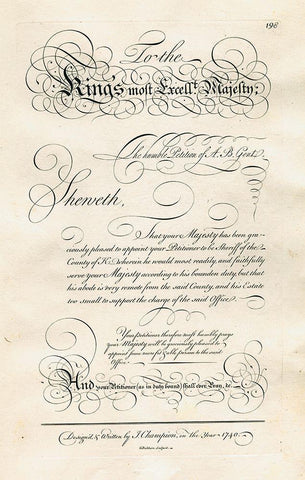 198
To the
King's most Excell.t Majesty;
The humble Petition of A. B. Gent.
Sheweth,
That your Majesty has been gra-
ciously pleased to appoint your Petitioner to be Sheriff of the
County of K. wherein he would most readily, and faithfully
serve your Majesty according to his bounden duty, but that
his abode is very remote from the said County, and his Estate
too small to support the charge of the said Office.
Your Petitioner therefore most humbly prays
your Majesty will be graciously pleased to
appoint some more fit & able person to the said
Office.
And your Petitioner (as in duty bound) shall ever Pray, &c.
Design'd & Written by J. Champion, in the Year 1740.
sculpsit.